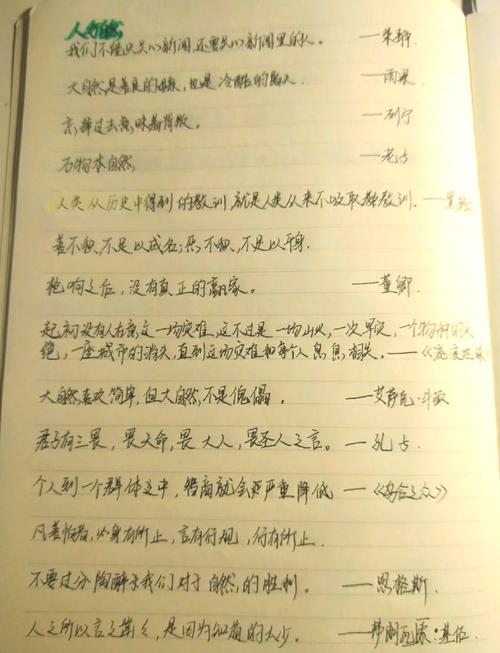 人与自然
我们不能只关心新闻,还要关心新闻里的人。 ——朱静
大自然是善良的母亲,也是冷酷的屠夫 ——雨果
忘掉过去意味着背叛。 ——列宁
万物本自然 ——老子
人类从历史中得到的教训,就是人类从来不吸取教训。——黑格
善不积,不足以成名;恶不积,不足以灭身.
枪响之后,没有真正的赢家。 ——董卿
起初没有人在意这一场灾难,这不过是一场山火,一次旱灾,一个物种的灭
绝,一座城市的消失,直到这场灾难和每个人息息相关。——《流浪地球》
大自然喜欢简单,但大自然不是傀儡。 ——艾萨克·牛顿
君子有三畏,畏天命,畏大人,畏圣人之言。 ——孔子
个人到一个群体之中,智商就会严重降低 ——《乌合之众》
凡善怕者,必身有所正,言有所规,行有所止.
不要过分陶醉于我们对于自然的胜利。 ——恩格斯
人之所以言之凿凿,是因为知道的太少。